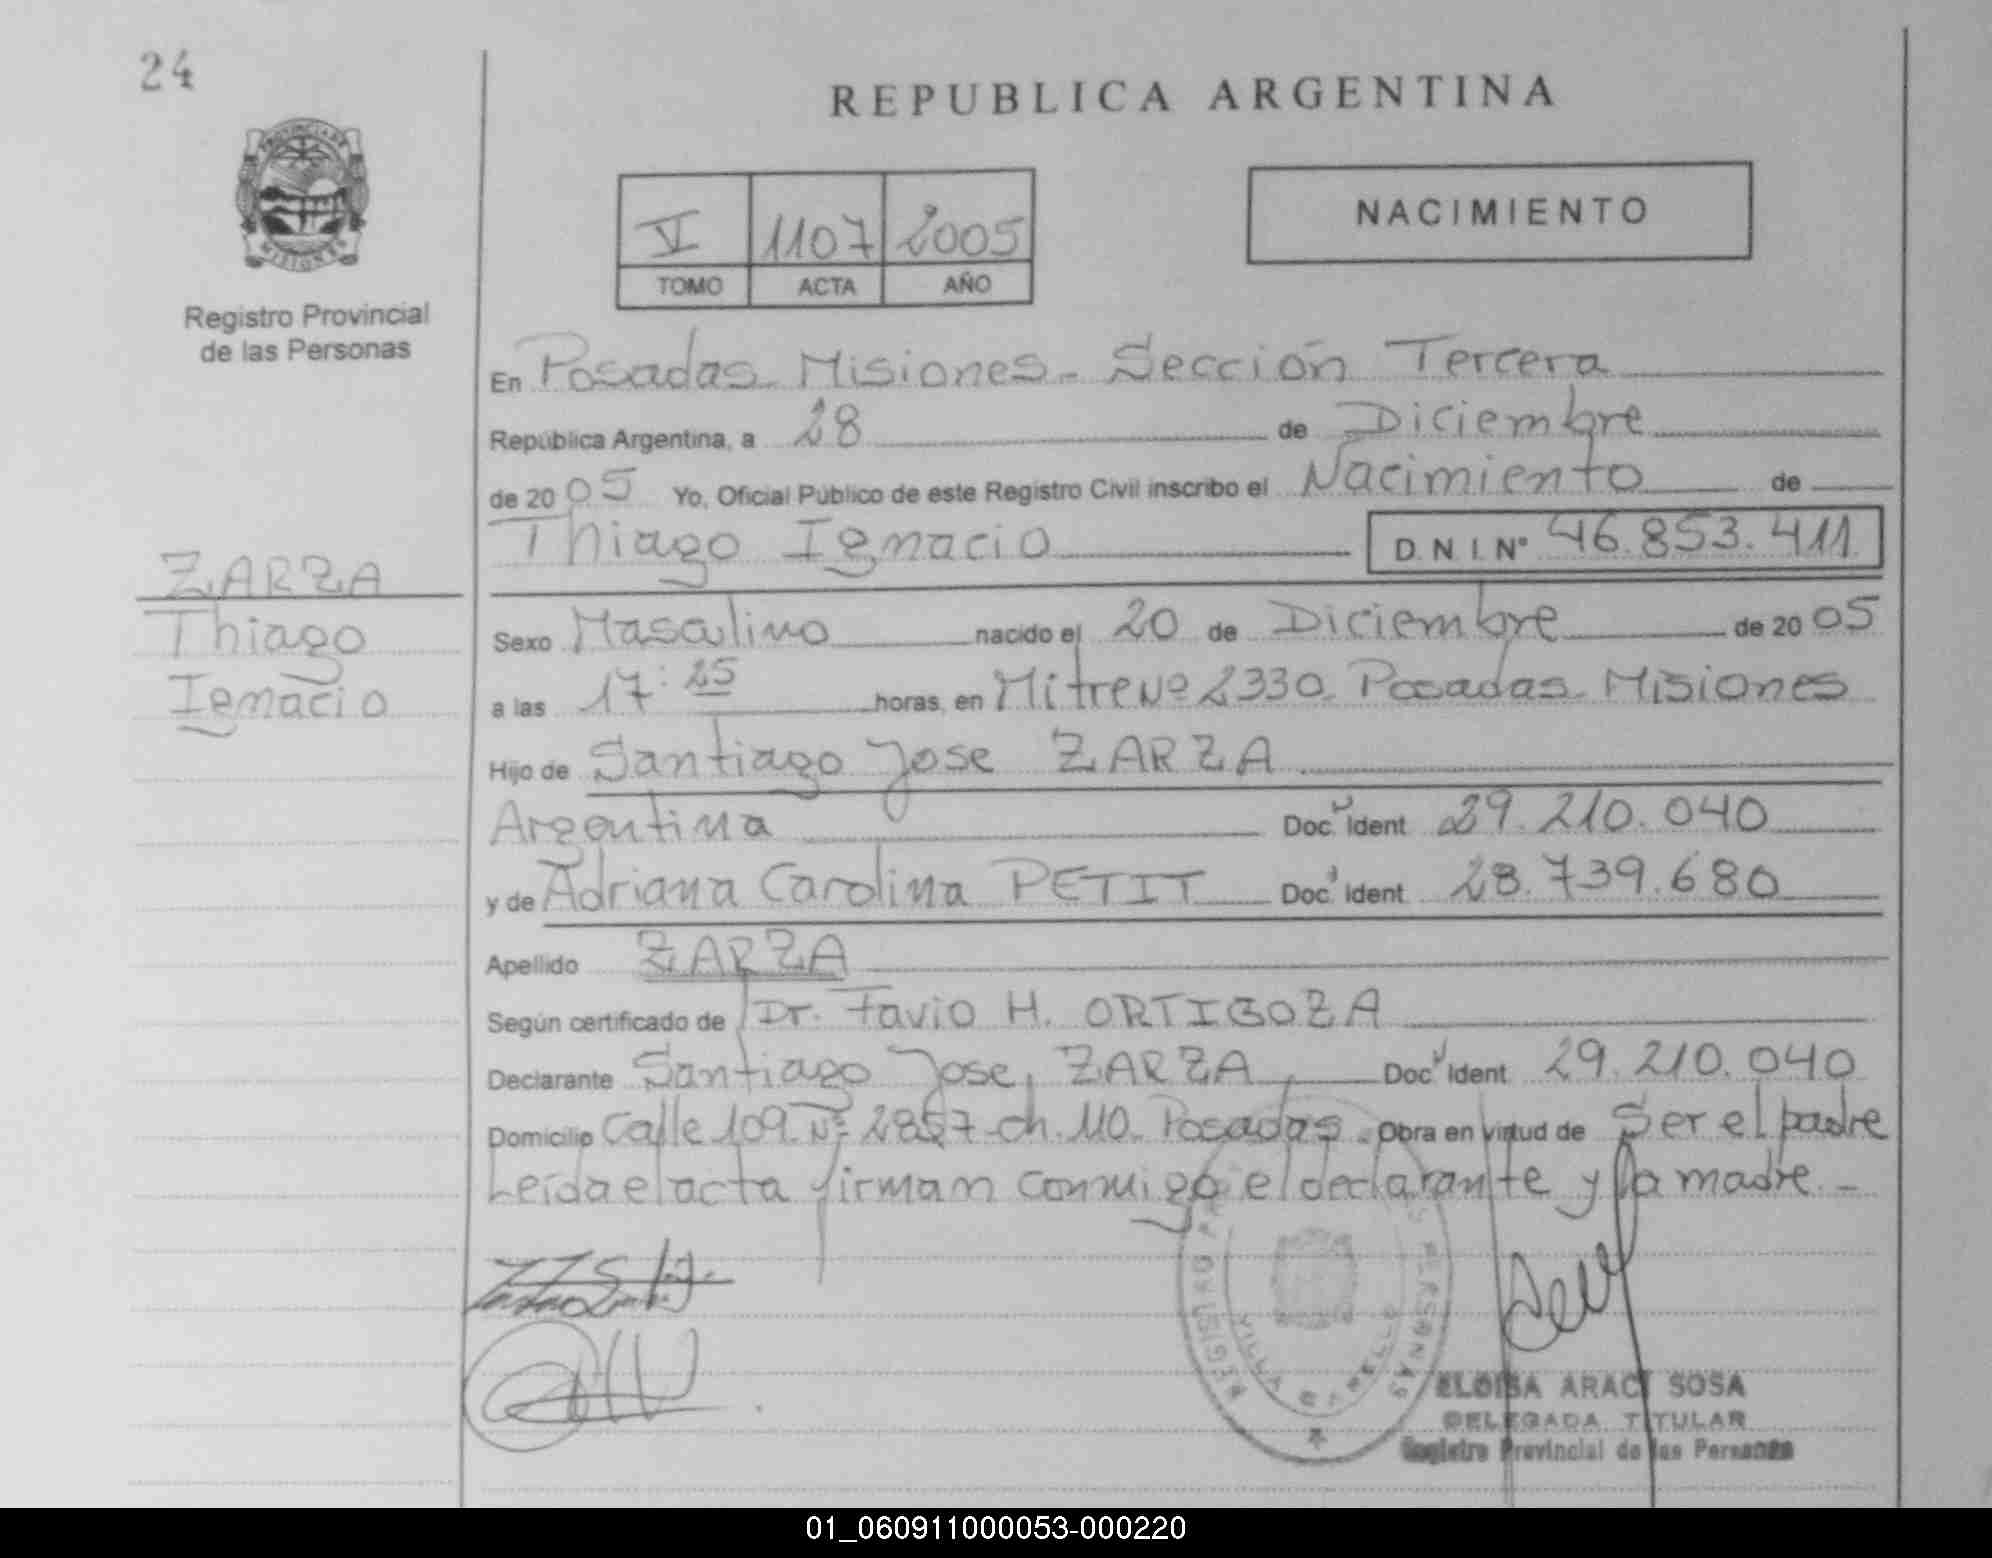 24
REPUBLICA ARGENTINA
PROVINCIA DE
MISIONES
NACIMIENTO
V 1107 2005
TOMO ACTA AÑO
Registro Provincial
de las Personas
En Posadas Misiones - Sección Tercera
República Argentina, a 28 de Diciembre
de 2005 Yo, Oficial Público de este Registro Civil inscribo el Nacimiento de
Thiago Ignacio D.N.I. Nº 46.853.411
ZARZA
Thiago
Ignacio
Sexo Masculino nacido el 20 de Diciembre de 2005
a las 17:25 horas, en Mitre Nº 2330 Posadas Misiones
Hijo de Santiago Jose ZARZA
Argentina Doc. Ident 29.210.040
y de Adriana Carolina PETIT Doc. Ident 28.739.680
Apellido ZARZA
Según certificado de Dr. Favio H. ORTIGOZA
Declarante Santiago Jose, ZARZA, Doc. Ident 29.210.040
Domicilio Calle 109 Nº 2857 ch. 110 Posadas Obra en virtud de Ser el padre
Leída el acta firman conmigo el declarante y la madre. -
VILLA
ELOISA ARACI SOSA
DELEGADA TITULAR
Registro Provincial de las Personas
01_060911000053-000220